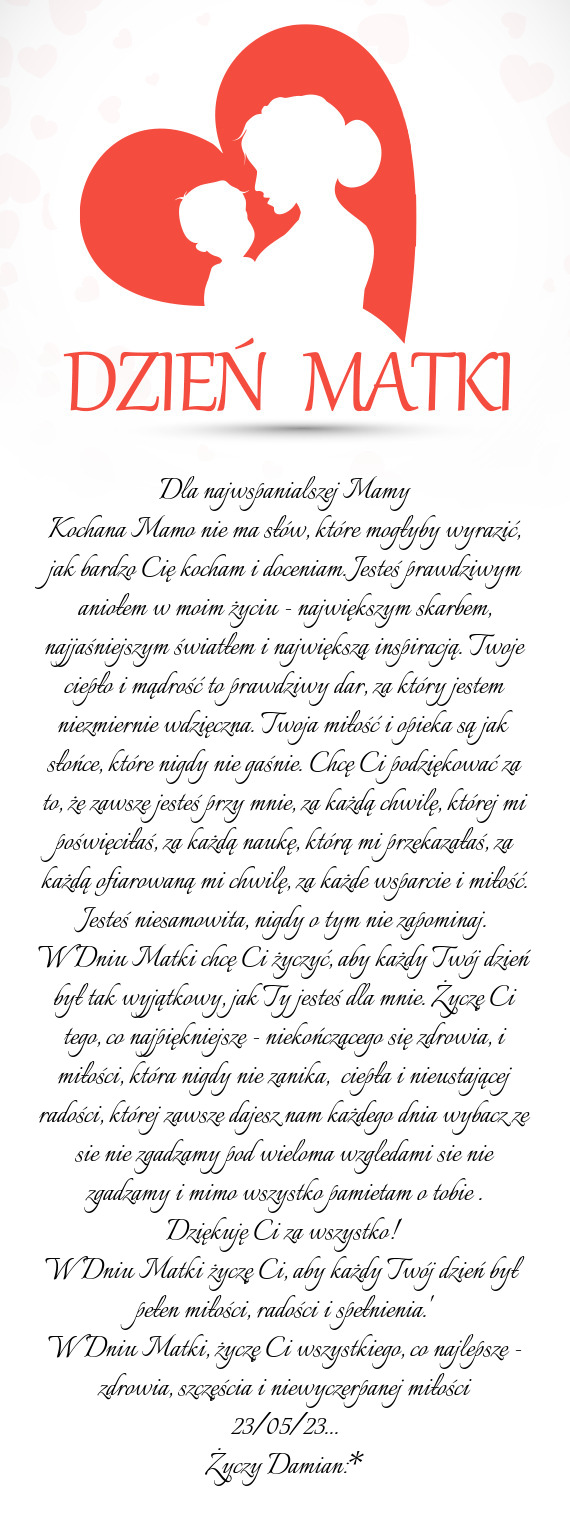 DZIEŃ MATKI
Dla najwspanialszej Mamy
Kochana Mamo nie ma słów, które mogłyby wyrazić,
jak bardzo Cię kocham i doceniam. Jesteś prawdziwym
aniołem w moim życiu - największym skarbem,
najjaśniejszym światłem i największą inspiracją. Twoje
ciepło i mądrość to prawdziwy dar, za który jestem
niezmiernie wdzięczna. Twoja miłość i opieka są jak
słońce, które nigdy nie gaśnie. Chcę Ci podziękować za
to, że zawsze jesteś przy mnie, za każdą chwilę, której mi
poświęciłaś, za każdą naukę, którą mi przekazałaś, za
każdą ofiarowaną mi chwilę, za każde wsparcie i miłość.
Jesteś niesamowita, nigdy o tym nie zapominaj.
W Dniu Matki chcę Ci życzyć, aby każdy Twój dzień
był tak wyjątkowy, jak Ty jesteś dla mnie. Życzę Ci
tego, co najpiękniejsze - niekończącego się zdrowia, i
miłości, która nigdy nie zanika,  ciepła i nieustającej
radości, której zawsze dajesz nam każdego dnia wybacz ze
sie nie zgadzamy pod wieloma wzgledami sie nie
zgadzamy i mimo wszystko pamietam o tobie .
Dziękuję Ci za wszystko!
W Dniu Matki życzę Ci, aby każdy Twój dzień był
pełen miłości, radości i spełnienia.'
W Dniu Matki, życzę Ci wszystkiego, co najlepsze -
zdrowia, szczęścia i niewyczerpanej miłości
23/05/23...
Życzy Damian:*